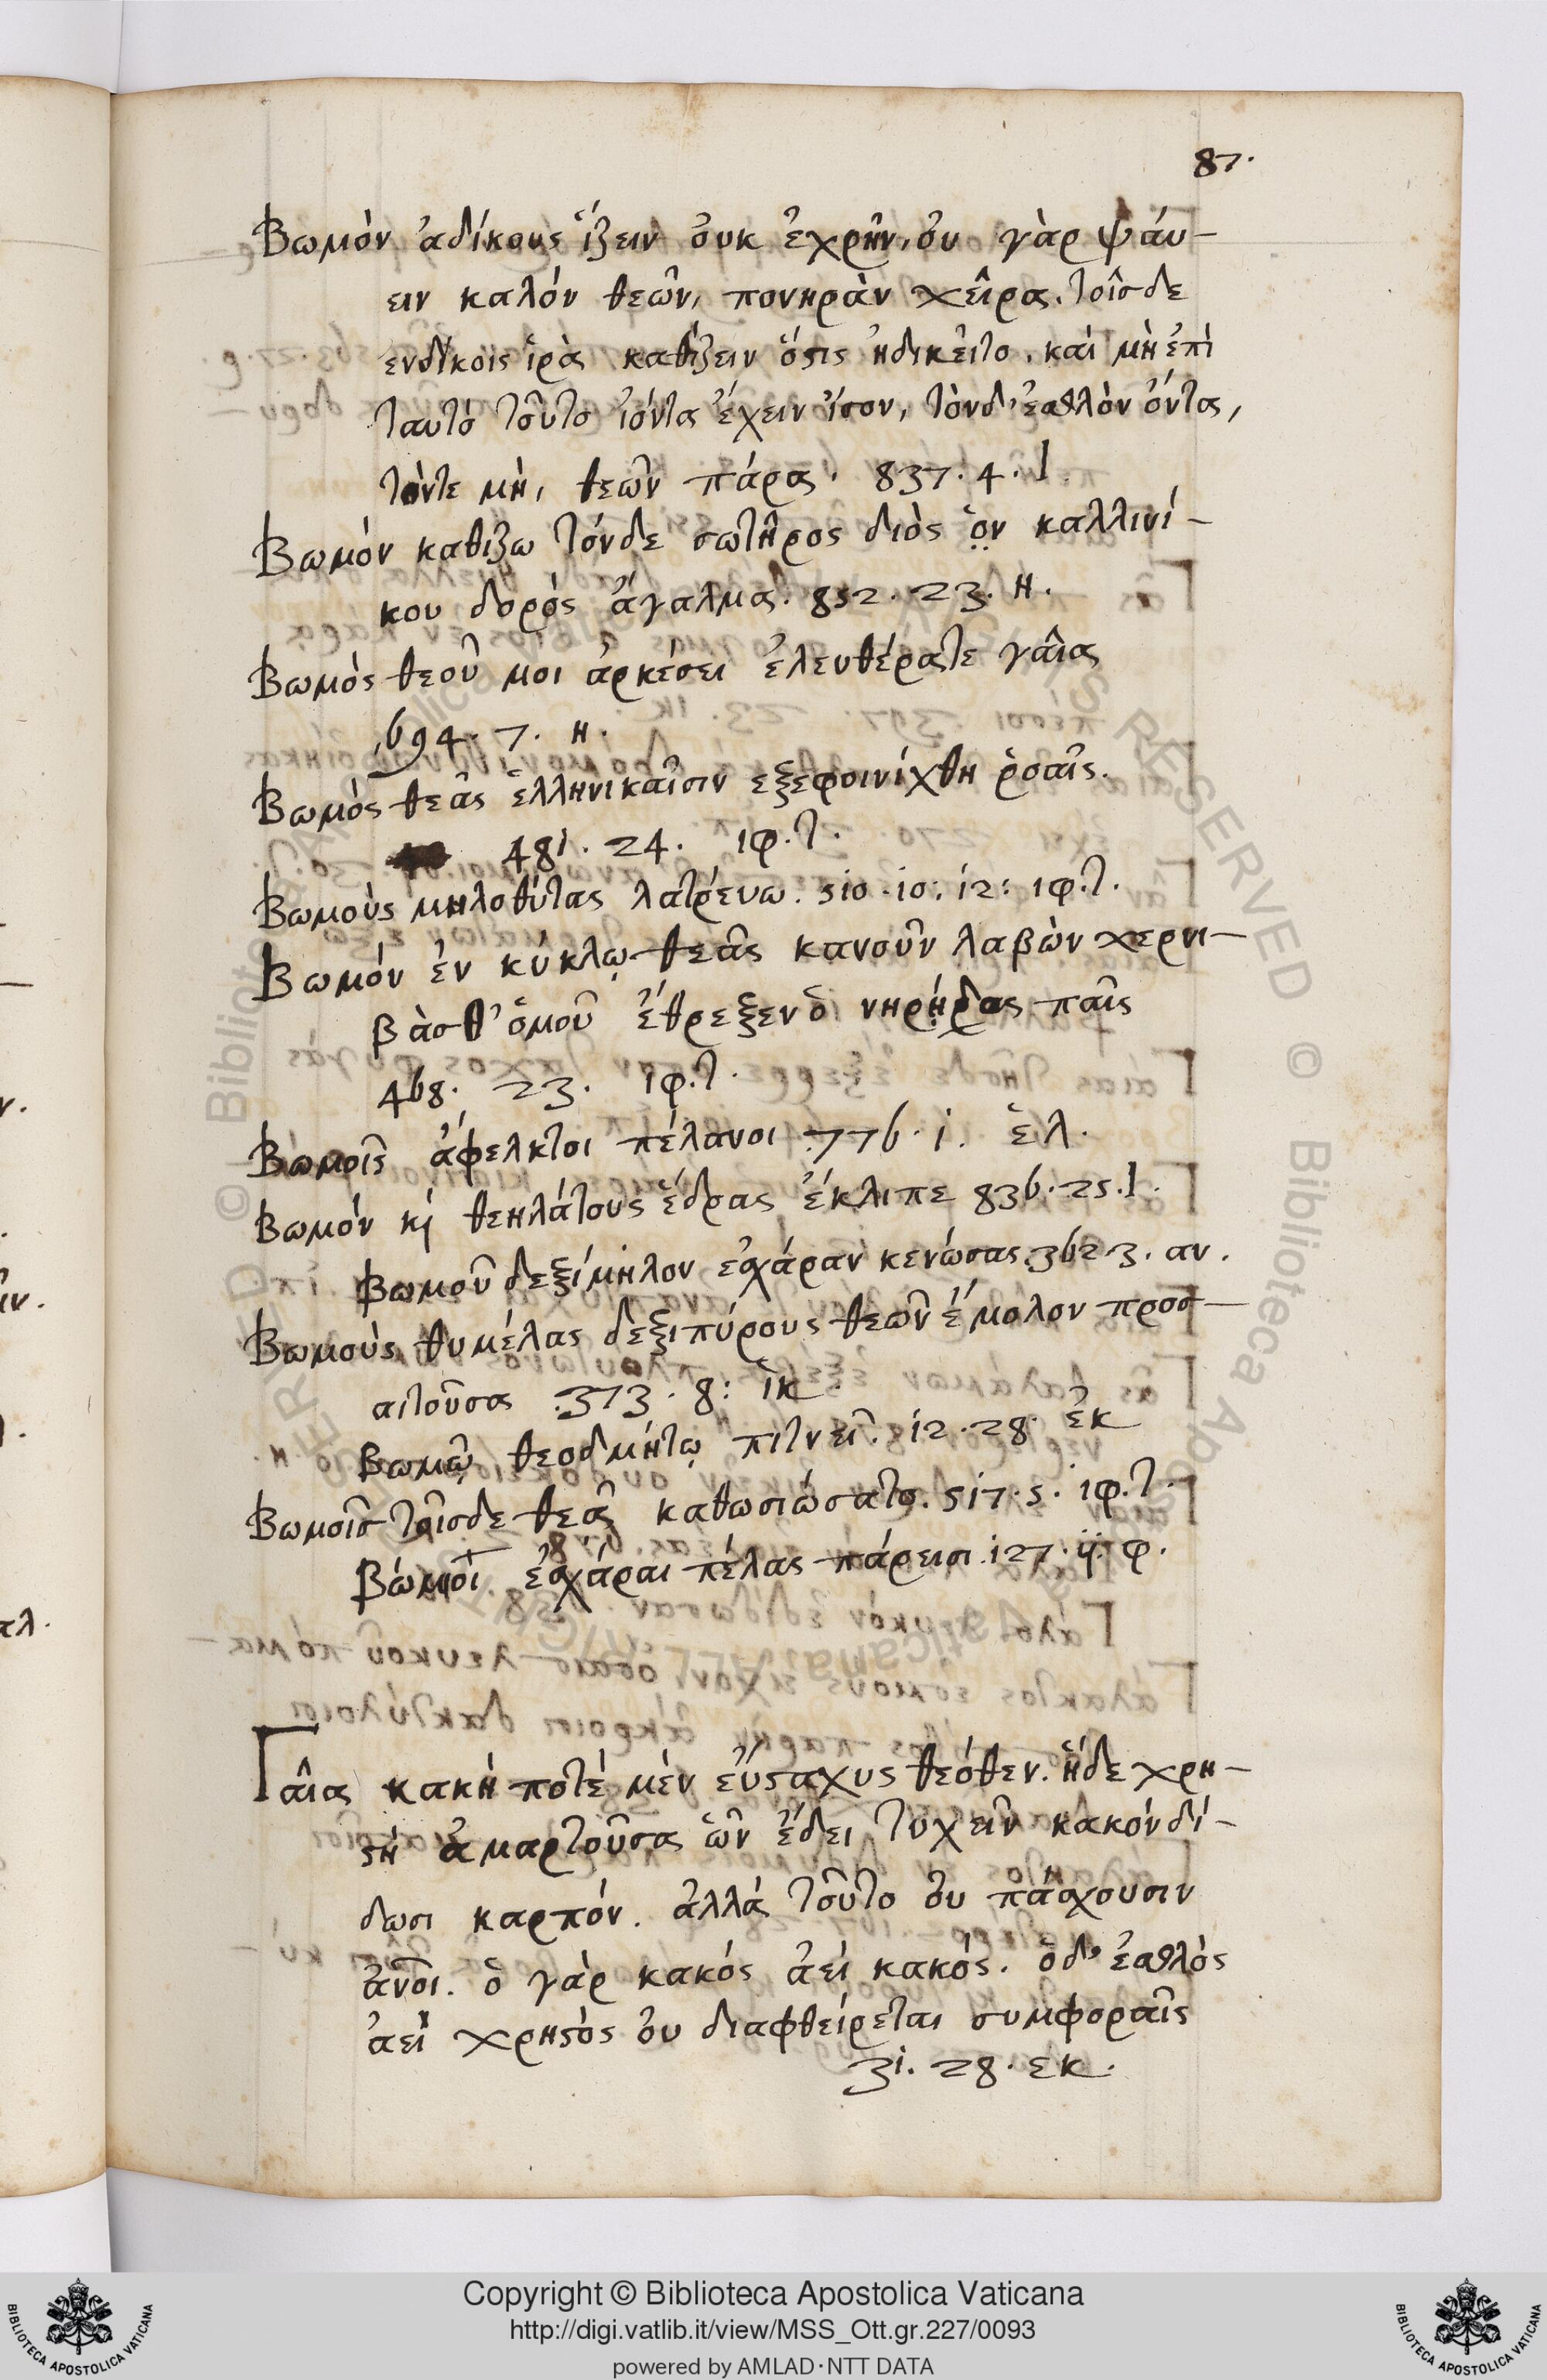 87.
Βωμὸν ἀδίκους ἵζειν ὀυκ ἐχρῆν, ὀυ γὰρ ψάυ-
ειν καλόν θεῶν, πονηρὰν χεῖρα. τοῖσδε
ενδίκοις ἱρὰ καθίζειν ὅςις ἠδικεῖτο. κάι μὴ ἐπὶ
ταυτό τοῦτο ἰόντα ἔχειν ἴσον, τὸνδ' ἐσθλὸν ὄντα,
τόντε μὴ, θεῶν πάρα. 837.4.
Βωμόν καθιζω τόνδε σωτῆρος διὸς ὃν καλλινί-
κου δορός ἄγαλμα. 852.23. Η.
Βωμὸς θεοῦ μοι ἀρκέσει ἐλευθέρατε γᾶια
694. 7. Η.
Βωμὸς θεᾶς ἑλληνικαῖσιν εξεφοινίχθη ῥοαῖς.
481. 24. ιφ.τ.
Βωμοὺς μηλοθύτας λατρέυω. 510.10: 12: ιφ.τ.
Βωμόν ἐν κύκλῳ θεᾶς κανοῦν λαβὼν χερνι-
βὰσθ' ὁμοῦ ἔθρεξεν ὁ νηρῄδας παῖς
468. 23. ιφ.τ.
Βωμοῖς ἄφελκτοι πέλανοι 776. 1. ἑλ.
Βωμόν κὶ θεηλάτους ἕδρας ἔκλιπε 836.25.
Βωμοῦ δεξίμηλον εσχάραν κενώσας. 362 3. αν.
Βωμοὺς θυμέλας δεξιπύρους θεῶν ἔμολον προσ-
αιτοῦσα 373. 8: ἱκ
Βωμῷ θεοδμήτῳ πιτνεῖ. 12.28. ἑκ
Βωμοῖς τοῖσδε θεᾶ καθωσιώσατο. 517.5. ιφ.τ.
Βώμοὶ ἐσχάραι πέλας πάρεισι 127. ϋ. φ.
Γᾶια κακή ποτέ μὲν ἔυςαχυς θεόθεν. ἥδε χρη-
ςὴ ἁμαρτοῦσα ὧν ἔδει τυχεῖν κακόν δί-
δωσι καρπόν. ἀλλά τοῦτο ὀυ πάσχουσιν
ἀν̅οι. ὁ γὰρ κακός ἀεί κακός. ὁδ' ἐσθλὸς
ἀεὶ χρηςὸς ὀυ διαφθείρεται συμφοραῖς
31. 28. εκ.
Copyright © Biblioteca Apostolica Vaticana
http://digi.vatlib.it/view/MSS_Ott.gr.227/0093
powered by AMLAD·NTT DATA
BIBLIOTECA APOSTOLICA VATICANA
BIBLIOTECA APOSTOLICA VATICANA